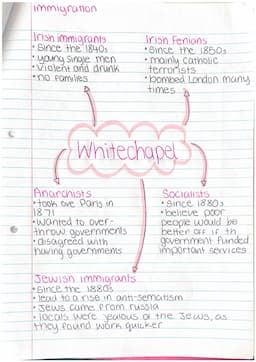 Immigration
Irish immigrants
• Since the 1840s
• young single men
• Violent and drunk
• no families
Irish Fenians
• Since the 1850s
• mainly catholic
terrorists
• bombed London many
times
Whitechapel
Anarchists
• took ove Paris in
1871
• Wanted to over-
throw governments
• disagreed with
having governments
Socialists
• since 1880s
• believe poor
people would be
better off if th
government funded
important services
Jewish immigrants
• since the 1880s
• lead to a rise in anti-sematism
• Jews came from russia
• locals were jealous of the Jews, as
they found work quicker